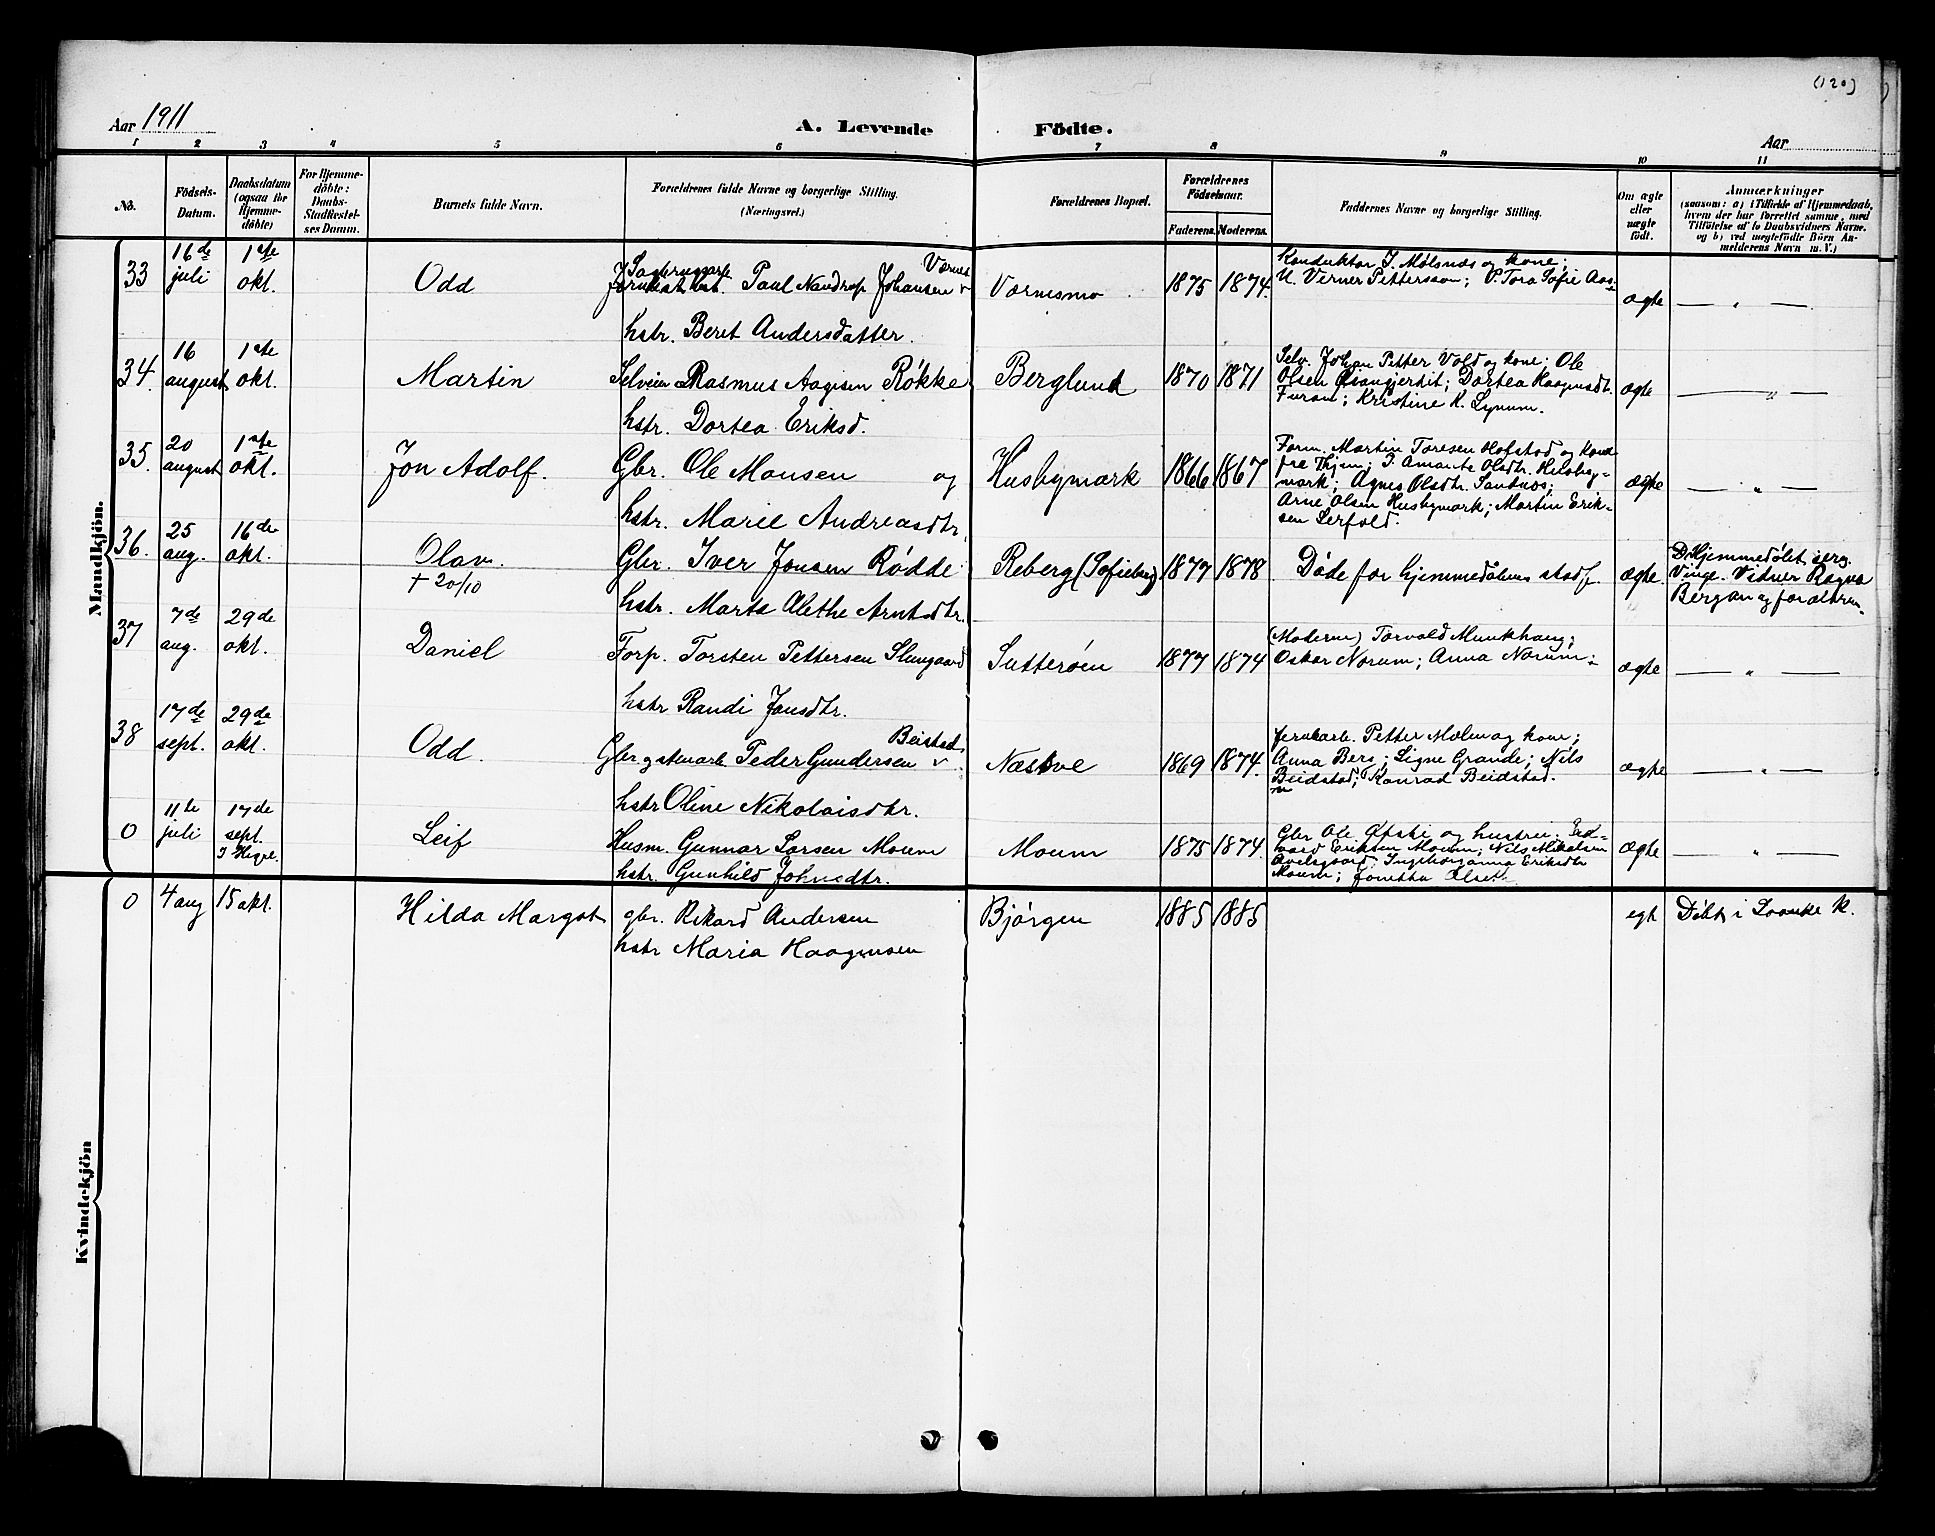 (120)
Aar 1911
A. Levende Födte.
Aar
1 2 3 4 5 6 7 8 9 10 11
No.
Födsels-Datum.
Daabsdatum (ogsaa for Hjemme-döbte)
For Hjemme-döbte: Daabs-Stadfæstel-ses Datum.
Barnets fulde Navn.
Forældrenes fulde Navne og borgerlige Stilling.
(Næringsvei.)
Forældrenes Bopæl.
Forældrenes Födselsaar.
Faderens. Moderens.
Faddernes Navne og borgerlige Stilling.
Om ægte eller uægte födt.
Anmærkninger
(saasom: a) i Tilfælde af Hjemmedaab, hvem der har forrettet samme, med Tilföielse af to Daabsvidners Navne. og b) ved uægtefödte Börn Anmelderens Navn m. V.)
Mandkjön.
33 16de juli 1ste okt. Odd
Paul Johansen
hstr. Beret Andersdatter.
Værnesmo 1875 1874.
Konduktør J. Mølsnæs og kone;
U. Verner Pettersson; P. Tora Sofie
ægte — " —
34. 16 august 1ste okt. Martin
Selveier Rasmus Aagesen Røkke
hstr. Dortea Eriksd.
Berglund 1870 1871
Selv. Johan Petter Vold og kone; Ole
Olsen Dortea Haagensdt.
Kristine K. Lynum.
ægte — " —
35. 20 august 1ste okt. Jon Adolf.
Gbr. Ole Monsen og
hstr. Marie Andreasdtr.
Husbymark 1866 1867
Form. Martin Toresen Hofstad og kone
fra Thjem; P. Amanda Olsdtr. Husby-
mark; Agnes Olsdtr. Sandnes;
Arne Olsen Husbymark; Martin Erik-
sen Lerfald.
ægte — " —
36. 25 aug. 16de okt. Olav.
+ 20/10
Gbr. Iver Jonsen Rødde
hstr. Marta Alethe Arntsdtr.
Reberg (Sofieberg) 1877 1878
Døde før hjemmedåbens stadf.
ægte.
Hjemmedøbt
Vinge. Vidner Ragna
Bergan og forældrene.
37 7de aug. 29de okt. Daniel
Forp. Torsten Pettersen Slungaard
hstr Randi Jonsdtr.
Sutterøen 1877 1874
(Moderen) Torvald Munkhaug;
Oskar Norum; Anna Norum
ægte — " —
38 17de sept. 29de okt. Odd.
Beistad
Gbr. og stenarb. Peder Gundersen
hstr Oline Nikolaisdtr.
Næskve 1869 1874.
Jernbarb. Petter Molin og kone;
Anna Berg; Signe Grande; Nils
Beidstad; Konrad Beidstad.
ægte — " —
0 11te juli 17de sept. Leif
Husm. Gunnar Larsen Moum
hstr. Gunhild Johnsdtr.
Moum 1875 1874.
Gbr Ole og hustru; Ed-
vard Eriksen Moum; Nils Mikalsen
Ingeborganna Eriksdtr
Moum;
ægte — " —
Kvindekjön
0 4 aug 15 okt. Hilda Margot
gbr. Rikard Andersen
hstr Maria Haagensen
Bjørgen 1885 1885
egt Døbt i Laanke K.